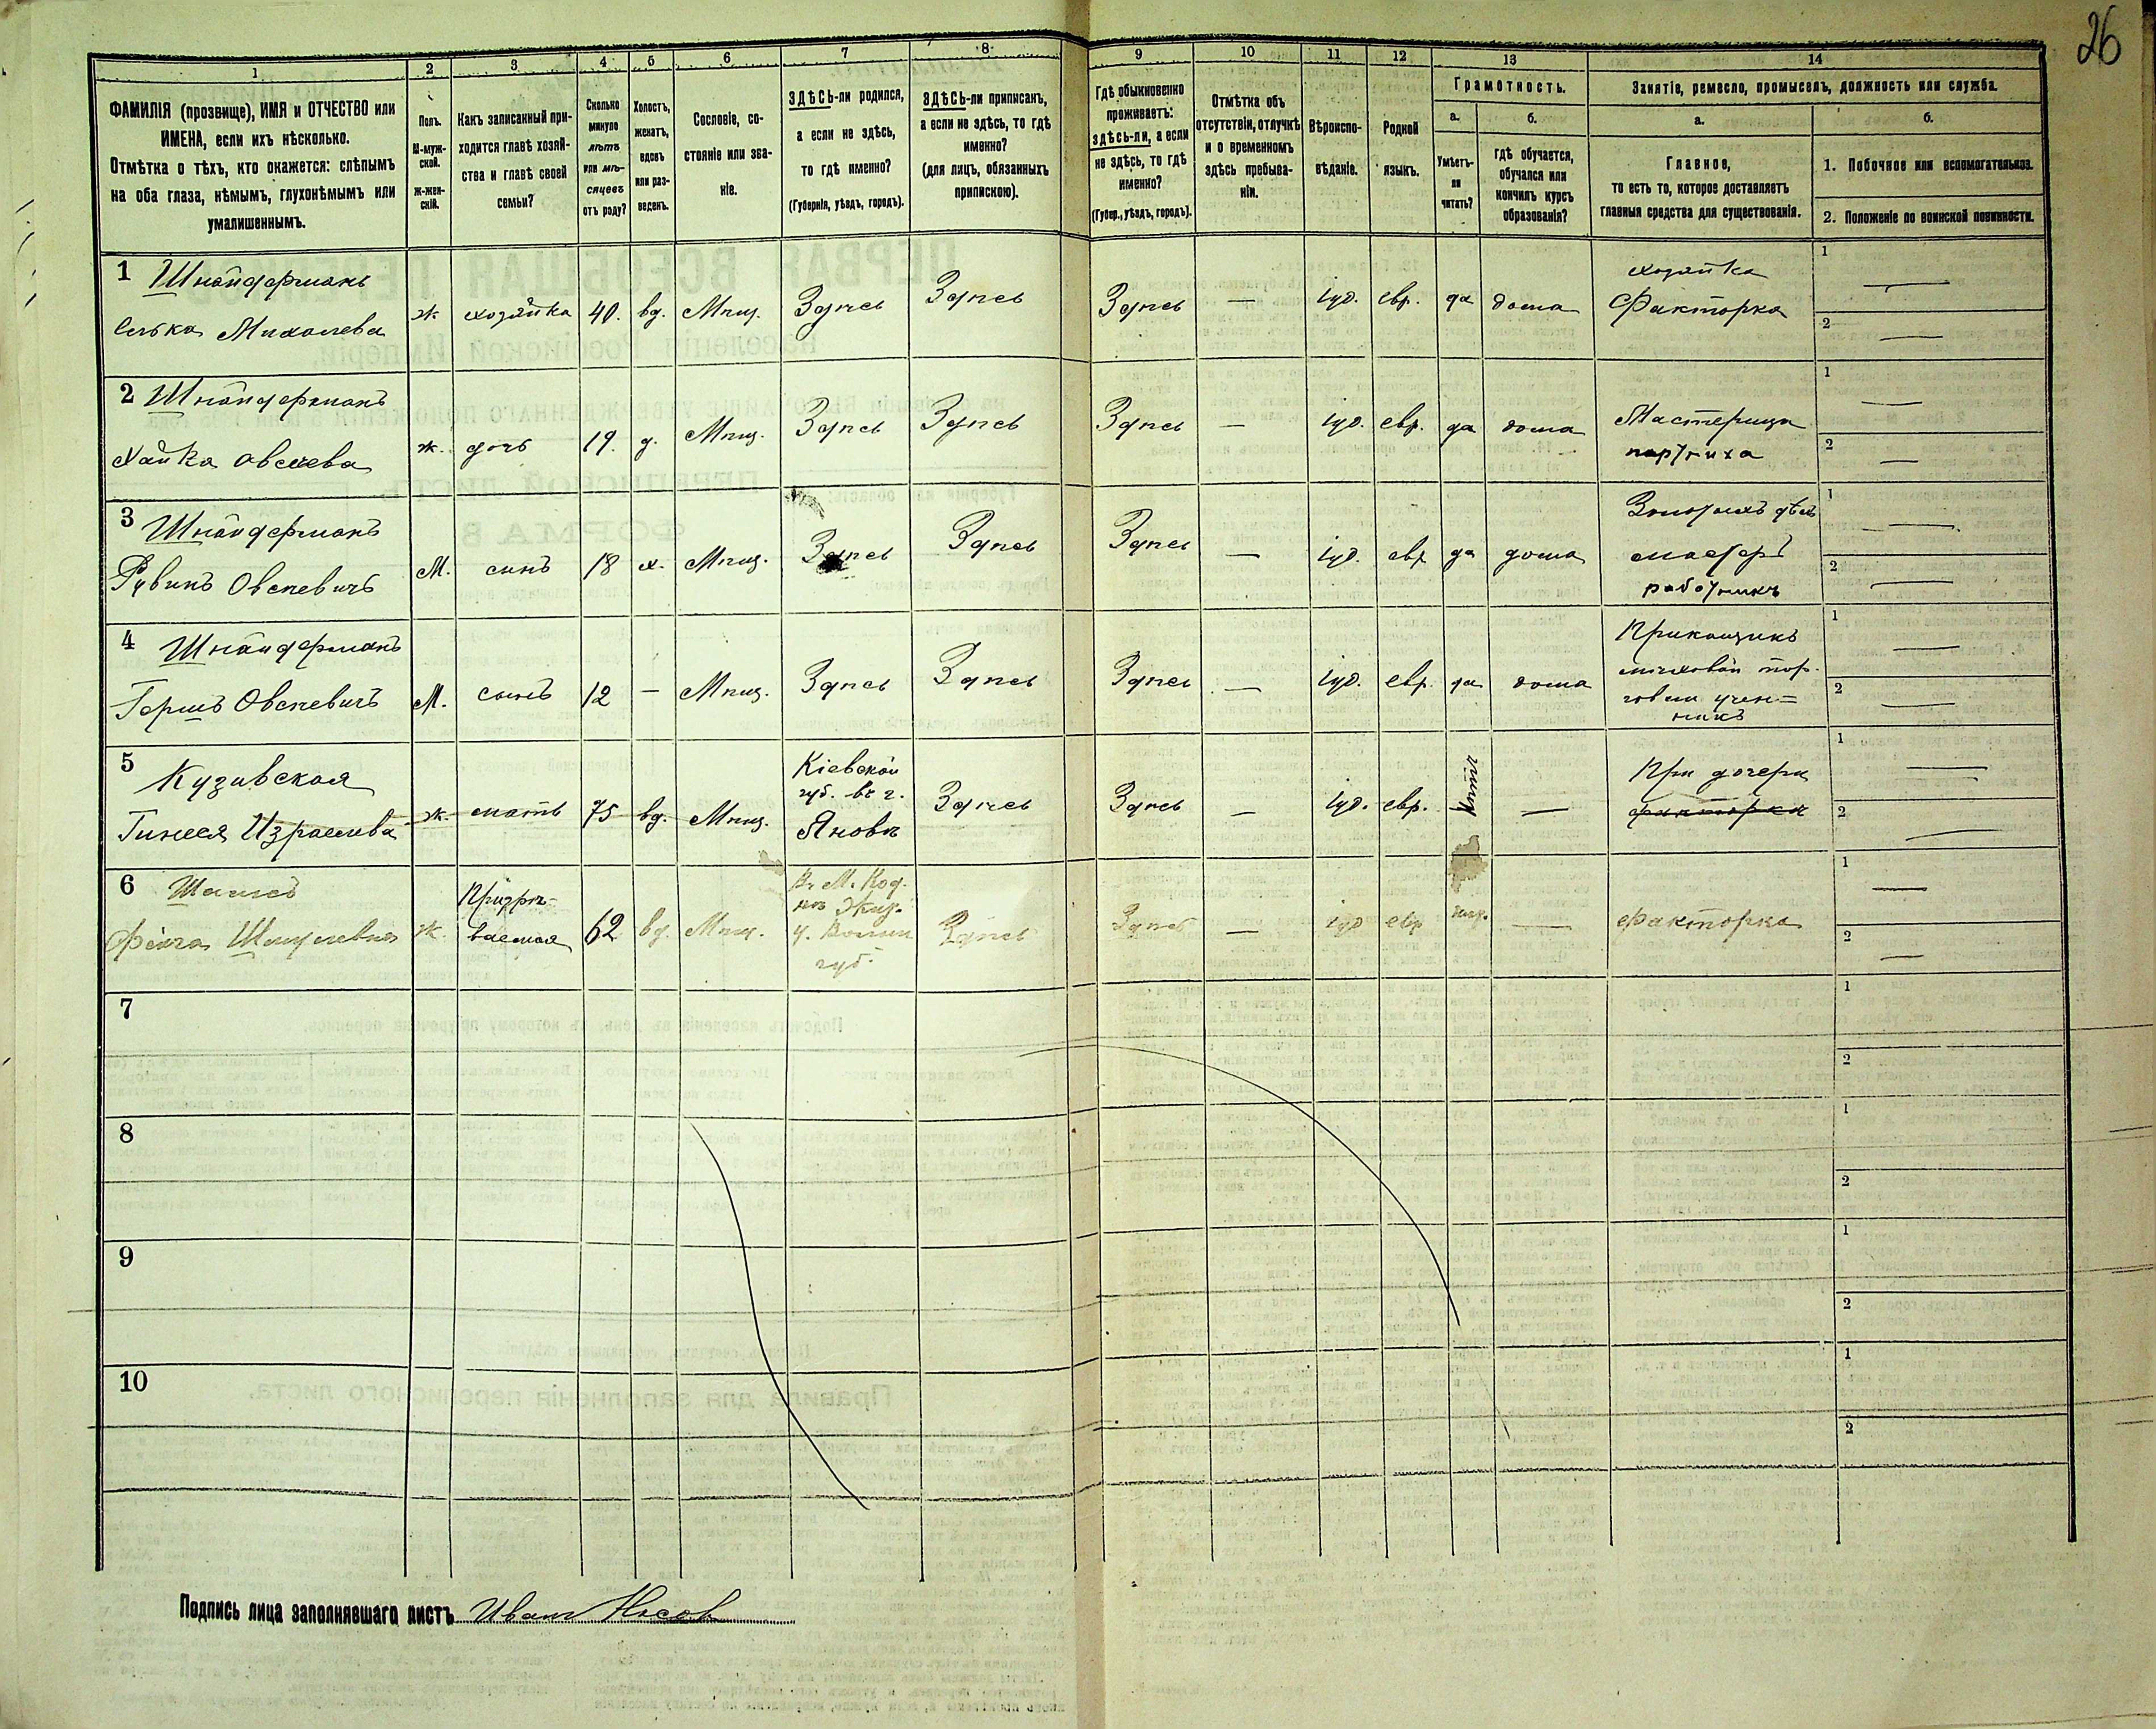 26
1 2 3 4 5 6 7 8 9 10 11 12 13 14
ФАМИЛІЯ (прозвище), ИМЯ и ОТЧЕСТВО или
ИМЕНА, если ихъ нѣсколько.
Отмѣтка о тѣхъ, кто окажется: слѣпымъ
на оба глаза, нѣмымъ, глухонѣмымъ или
умалишеннымъ.
Полъ.
М-муж-
ской.
ж-жен-
скій.
Какъ записанный при-
ходится главѣ хозяй-
ства и главѣ своей
семьи?
Сколько
минуло
лѣтъ
или мѣ-
сяцевъ
отъ роду?
Холостъ,
женатъ,
вдовъ
или раз-
веденъ.
Сословіе, со-
стояніе или зва-
ніе.
ЗДѢСЬ-ли родился,
а если не здѣсь,
то гдѣ именно?
(Губернія, уѣздъ, городъ).
ЗДѢСЬ-ли приписанъ,
а если не здѣсь, то гдѣ
именно?
(для лицъ, обязанныхъ
припискою).
Гдѣ обыкновенно
проживаетъ:
здѣсь-ли, а если
не здѣсь, то гдѣ
именно?
(Губер., уѣздъ, городъ).
Отмѣтка объ
отсутствіи, отлучкѣ
и о временномъ
здѣсь пребыва-
ніи.
Вѣроиспо-
вѣданіе.
Родной
языкъ.
Грамотность.
а.
Умѣетъ-
ли
читать?
б.
гдѣ обучается,
обучался или
кончилъ курсъ
образованія?
Занятіе, ремесло, промыселъ, должность или служба.
а.
Главное,
то есть то, которое доставляетъ
главныя средства для существованія.
б.
1. Побочное или вспомогательное.
2. Положеніе по воинской повинности.
1 Шнайдерманъ
Михолева
ж хозяйка 40. вд. Мѣщ. Здѣсь Здѣсь Здѣсь — іуд. евр. да дома
хозяйка
Факторка
1 —
2 —
2 Шнайдерманъ
Хайка Овсеева
ж. дочь 19. д. Мѣщ. Здѣсь Здѣсь Здѣсь — іуд. евр. да дома
Мастерица
портниха
1 —
2 —
3 Шнайдерманъ
Рувинъ Овсеевичъ
М. сынъ 18 х. Мѣщ. Здѣсь Здѣсь Здѣсь — іуд. евр да дома
Золотыхъ дѣлъ
мастеръ
работникъ
1 —
2 —
4 Шнайдерманъ
Гершъ Овсеевичъ
М. сынъ 12 — Мѣщ. Здѣсь Здѣсь Здѣсь — іуд. евр. да дома
Прикащикъ
мѣховой тор-
говли учен-
никъ
1 —
2 —
5 Кузивская
Израилева
ж. мать 75 вд. Мѣщ.
Кіевской
губ. въ г.
Яновѣ
Здѣсь Здѣсь — іуд. евр. нѣтъ —
При дочери
факторка
1 —
2 —
6
Шмулевна
ж.
Призрѣ-
ваемая
62 вд. Мѣщ.
въ М. Код-
нѣ Жит.
у. Волын
губ.
Здѣсь Здѣсь — іуд евр —
факторка
1 —
2 —
7
1
2
8
1
2
9
1
2
10
1
2
Подпись лица заполнявшаго листъ Иванъ Носов